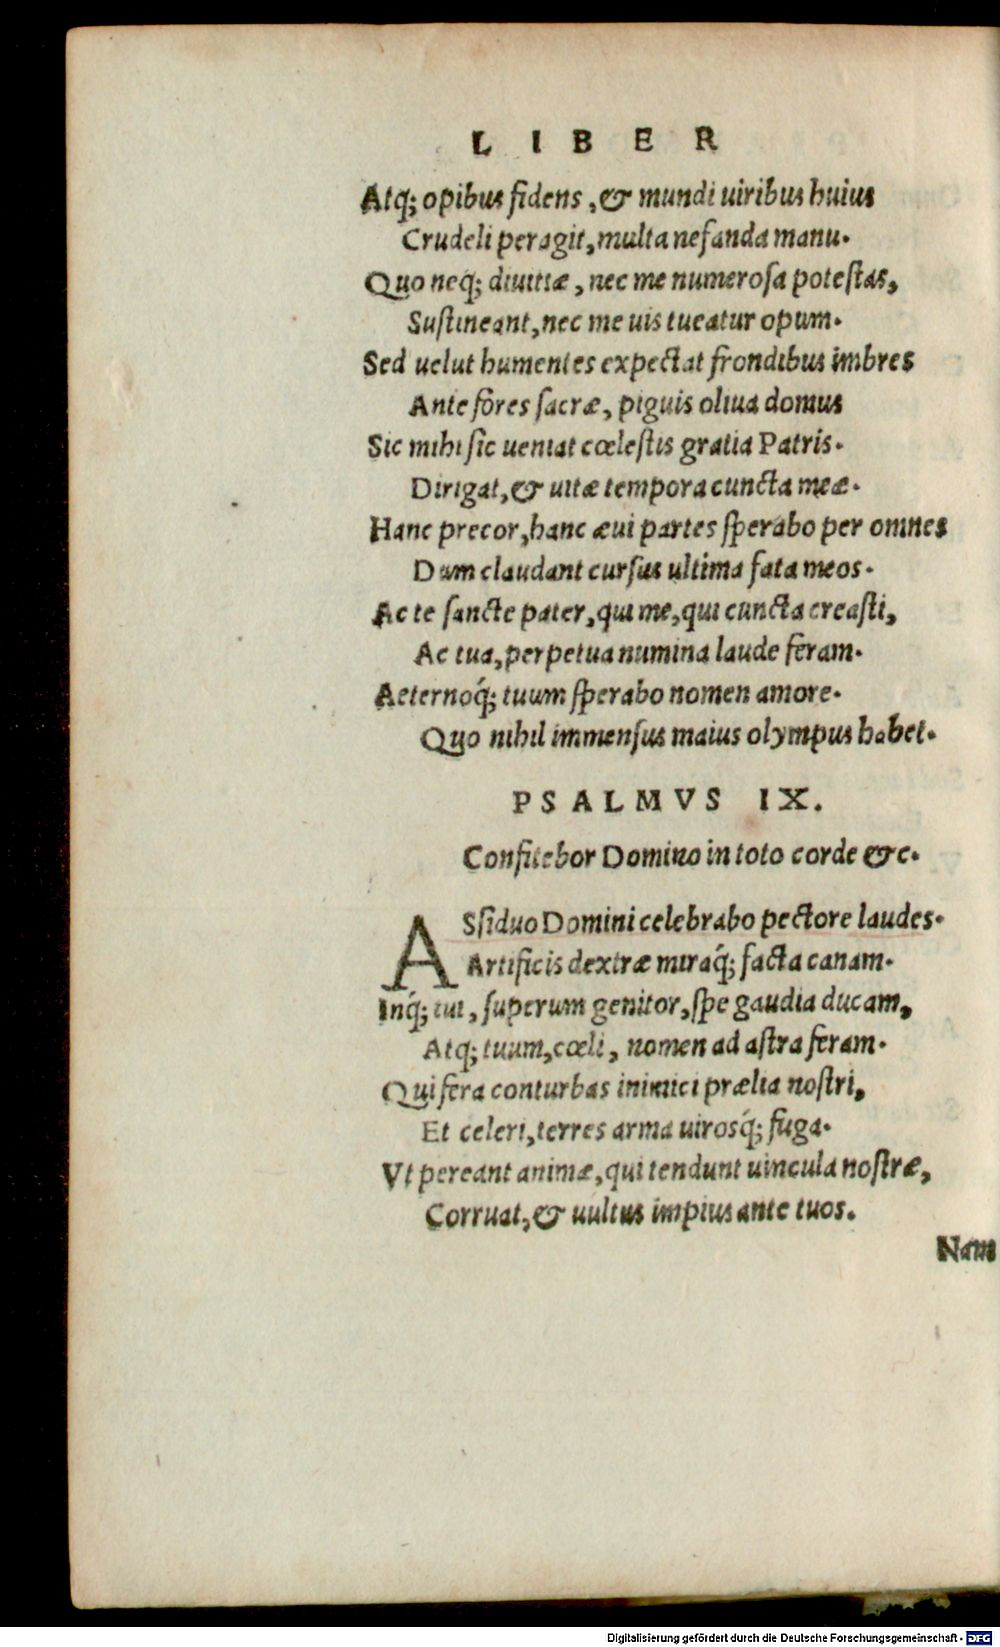 LIBER
Atq́; opibus fidens, & mundi uiribus huius
Crudeli peragit, multa nefanda manu.
Quo neq́; diuitiæ, nec me numerosa potestas,
Sustineant, nec me uis tueatur opum.
Sed uelut humentes expectat frondibus imbres
Ante fores sacræ, piguis oliua domus
Sic mihi sic ueniat cœlestis gratia Patris.
Dirigat, & uitæ tempora cuncta meæ.
Hanc precor, hanc æui partes sperabo per omnes
Dum claudant cursus ultima fata meos.
Ac te sancte pater, qui me, qui cuncta creasti,
Ac tua, perpetua numina laude feram.
Aeternoq́; tuum sperabo nomen amore.
Quo nihil immensus maius olympus habet.
PSALMVS IX.
Confitebor Domino in toto corde &c.
ASsiduo Domini celebrabo pectore laudes.
Artificis dextræ miraq́; facta canam.
Inq́; tui, superum genitor, spe gaudia ducam,
Atq; tuum, cœli, nomen ad astra feram.
Qui fera conturbas inimici prælia nostri,
Et celeri, terres arma uirosq́; fuga.
Vt pereant animæ, qui tendunt uincula nostræ,
Corruat, & uultus impius ante tuos.
Nam
Digitalisierung gefördert durch die Deutsche Forschungsgemeinschaft - DFG